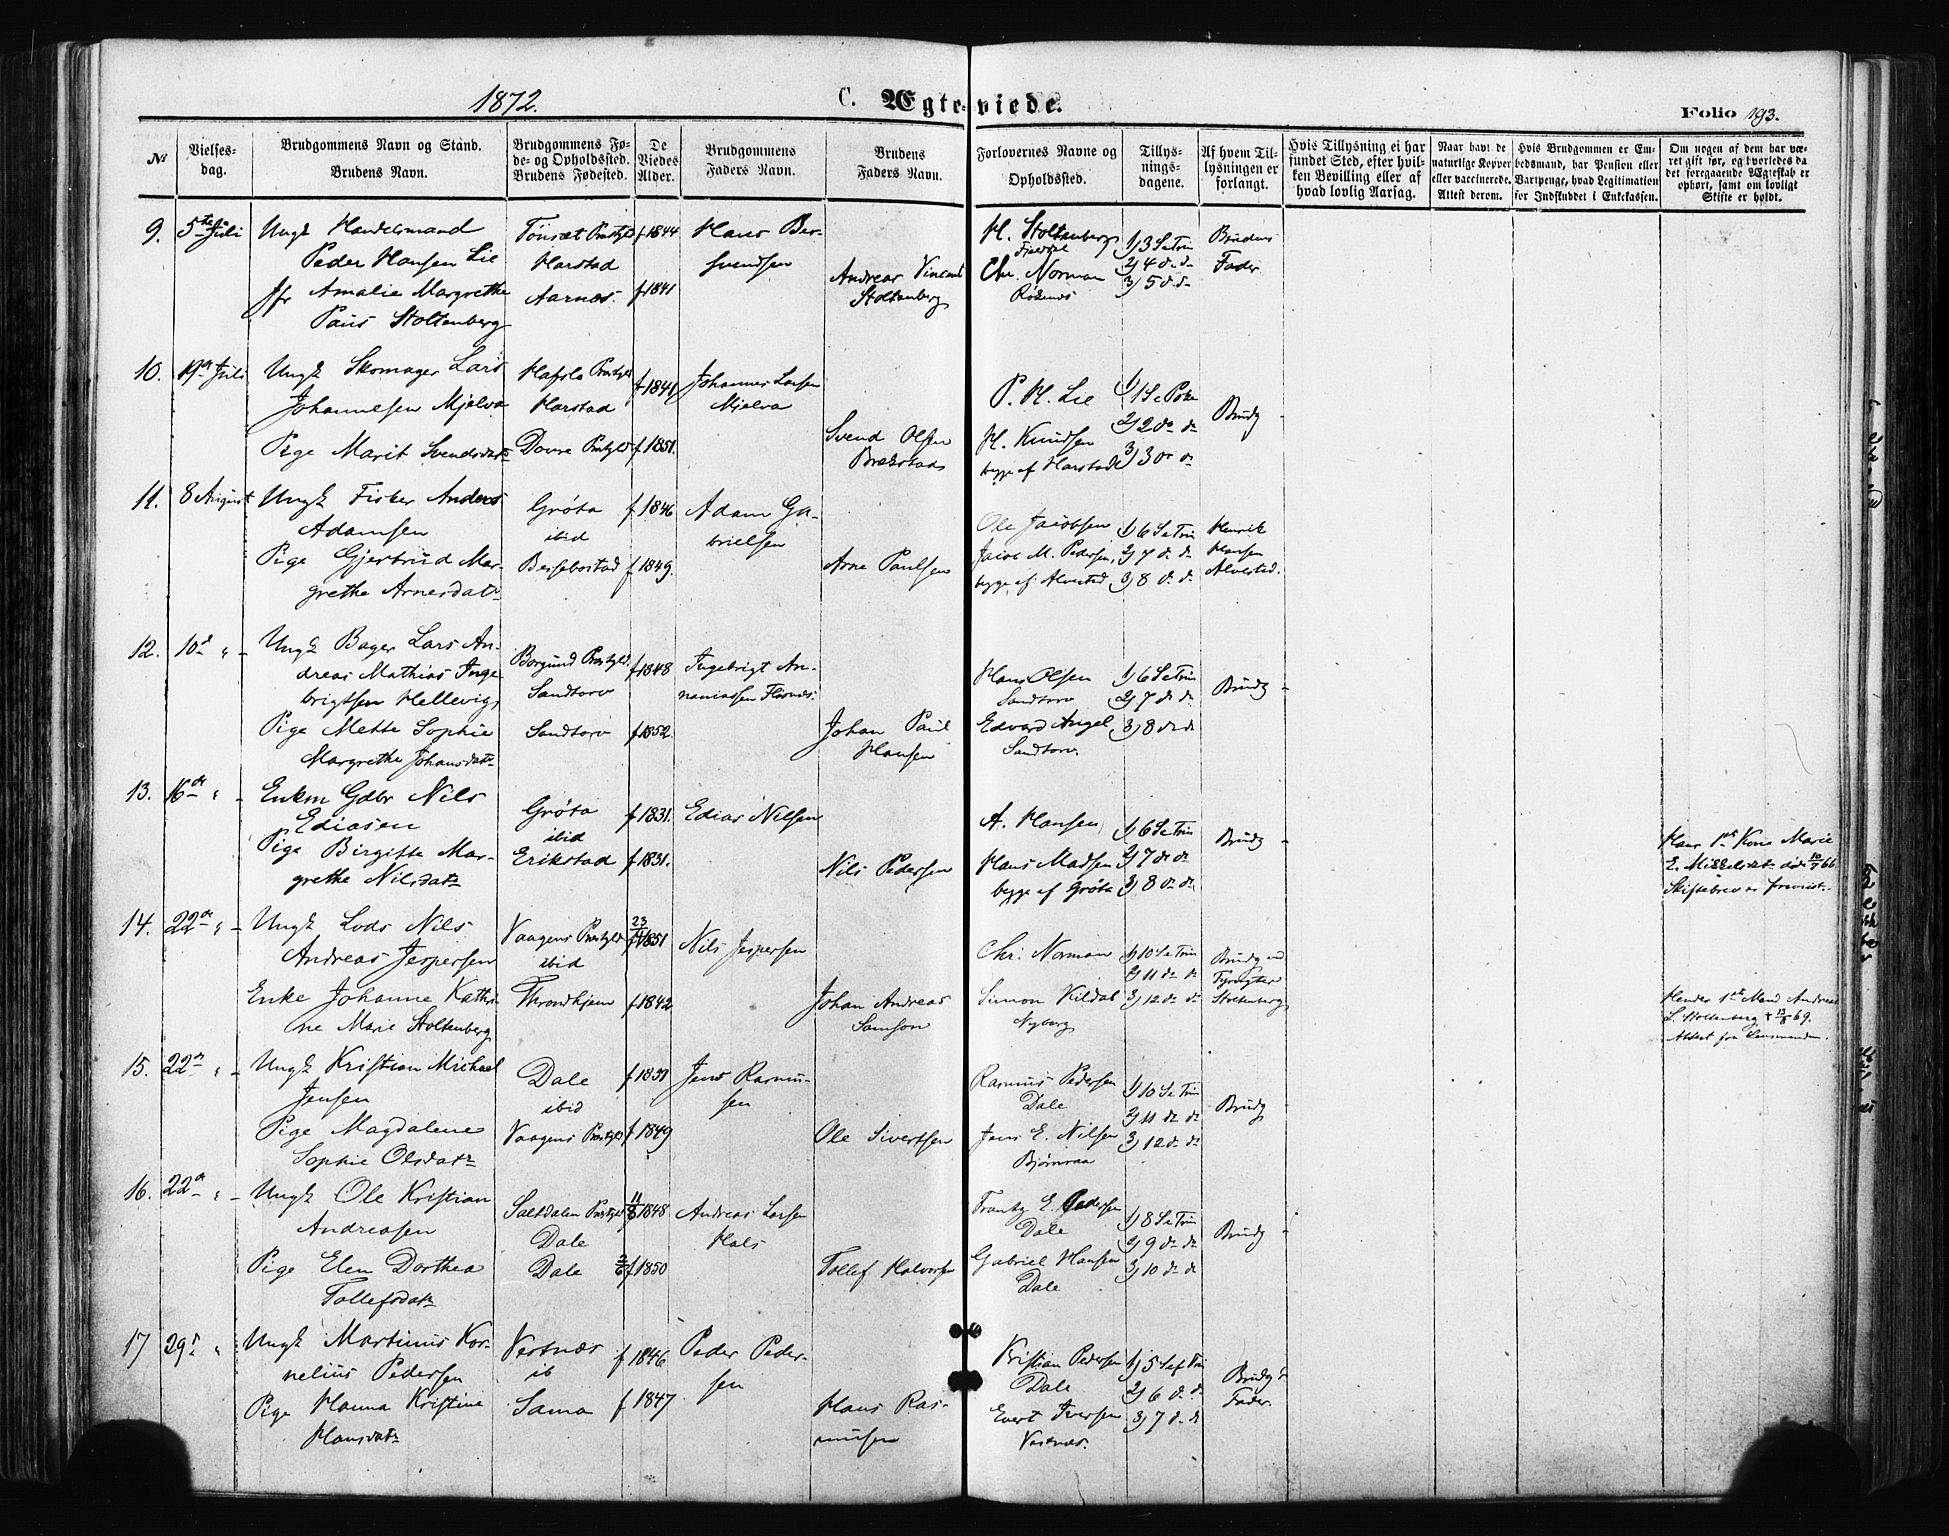 1872.
C. Ægteviede.
Folio 193.
№
Vielses-
dag.
Brudgommens Navn og Stand.
Brudens Navn.
Brudgommens Fø-
de- og Opholdssted.
Brudens Fødested.
De
Viedes
Alder.
Brudgommens
Faders Navn.
Brudens
Faders Navn.
Forlovernes Navne og
Opholdssted.
Tillys-
nings-
dagene.
Af hvem Til-
lysningen er
forlangt.
Hvis Tillysning ei har
fundet Sted, efter hvil-
ken Bevilling eller af
hvad lovlig Aarsag.
Naar havt de
naturlige Kopper
eller vaccinerede.
Attest derom.
Hvis Brudgommen er Em-
bedsmand, har Pension eller
Vartpenge, hvad Legitimation
for Indskuddet i Enkekassen.
Om nogen af dem har væ-
ret gift før, og hvorledes da
det foregaaende Ægteskab er
ophørt, samt om lovligt
Skifte er holdt.
9. 5te Juli
Ungk Handelsmand
Peder Hansen Lie
Jfr Amalie Margrethe
Paus Stoltenberg
Tönsæt Prstgld
Harstad
Aarnæs.
f 1844
f 1841
Hans Ber-
svendsen
Andreas Vincent
Stoltenberg
H. Stoltenberg
Chr. Norman
Rödenæs
1) 3 S e Trin
2) 4 d. d.
3) 5 d. d.
Brudens
Fader
10. 19de Juli
Ungk Skomager Lars
Johannesen Mjelva
Pige Marit Svendsdatr
Hafslo Prstgld
Harstad
Dovre Prstgld
f 1841
f 1851.
Johannes Larsen
Mjelva
Svend Olsen
Brækstad
P. H. Lie
H. Knudsen
begge af Harstad
1) 1 S e
2) 2 d. d.
3) 3 d. d.
Brudg
11. 8 August
Ungk Fisker Anders
Adamsen
Pige Gjertrud Mar-
grethe Arnesdatr
Gröta
ibid
Bessebostad
f 1846
f 1849.
Adam Ga-
brielsen
Arne Paulsen
Ole Jacobsen
Jacob M. Pedersen,
begge af Alvestad
1) 6 S e Trin
2) 7 d. d.
3) 8 d. d.
Henrik
Hansen
Alvestad.
12. 10d " -
Ungk Bager Lars An-
dreas Mathias Inge
brigtsen Hellevig
Pige Mette Sophie
Margrethe Johansdatr
Borgund Prstgld.
Sandtorv
Sandtorv
f 1848
f 1852.
Ingebrigt An-
naniassen Flornæs.
Johan Paul
Hansen
Hans Olsen
Sandtorv
Edvard Angel
Sandtorv.
1) 6 S e Trin
2) 7 d. d.
3) 8 d. d.
Brudg -
13. 16de " -
Enkm Gdbr Nils
Ediasen
Pige Birgitte Mar-
grethe Nilsdatr
Gröta
ibid
Erikstad
f 1831.
f 1831.
Edias Nilsen
Nils Pedersen
A. Hansen
Hans Madsen
begge af Gröta
1) 6 S e Trin
2) 7 d. d.
3) 8 d. d.
Brudg -
Hans 1ste Kone Marie
E. Mikkelsdtr död 10/7 66
Skiftebrev er forevist.
14. 22de " -
Ungk Lods Nils
Andreas Jespersen
Enke Johanne Kathri-
ne Marie Stoltenberg
Vaagens Prstgld
ibid
Throndhjem
f 1851
f 1842
Nils Jespersen
Johan Andreas
Samson
Chr. Norman
Simon Kildal
Nyborg
1) 10 S e Trin
2) 11 d. d.
3) 12 d. d.
Brudg ved
Fyrvogter
Stoltenberg
Hendes 1ste Mand Andreas
L. Stoltenberg † 12/8 69.
Attest fra Lensmanden.
15. 22de " -
Ungk Kristian Michael
Jensen
Pige Magdalene
Sophie Olsdatr
Dale
ibid
Vaagens Prstgld
f 1851
f 1849
Jens Rasmu-
sen
Ole Sivertsen
Rasmus Pedersen
Dale
Jens E. Nilsen
Bjørnraa
1) 10 S e Trin
2) 11 d. d.
3) 12 d. d.
Brudg -
16. 22de " -
Ungk Ole Kristian
Andreasen
Pige Elen Dorthea
Tollefsdatr
Saltdalen Prstgld
Dale
Dale
11/8 1848
2/6 f 1850
Andreas Larsen
Hals
Tollef Halvorsen
Frantz E. Pedersen
Dale
Gabriel Hansen
Dale
1) 8 S e Trin
2) 9 d. d.
3) 10 d. d.
Brudg -
17 29de "
Ungk Martinus Kor-
nelius Pedersen
Pige Hanna Kristine
Hansdatr
Vestnæs
ib
Sama
f 1846
f 1847
Peder Peder-
sen
Hans Ras-
musen
Kristian Pedersen
Dale
Evert Iversen
Vestnæs.
1) 5 S ef Trin
2) 6 d. d.
3) 7 d. d.
Brudg's
Fader.